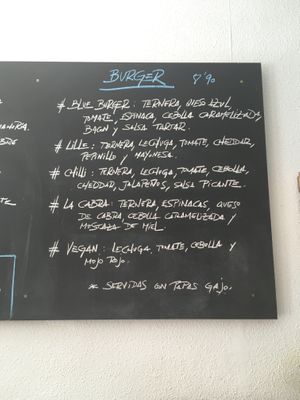 BURGER 8'90
# BLUE BURGER: TERNERA, QUESO AZUL,
TOMATE, ESPINACA, CEBOLLA CARAMELIZADA,
BACON Y SALSA TARTAR.
# LILLE: TERNERA, LECHUGA, TOMATE, CHEDDAR,
PEPINILLO Y MAYONESA.
# CHILI: TERNERA, LECHUGA, TOMATE, CEBOLLA,
CHEDDAR, JALAPEÑOS, SALSA PICANTE.
# LA CABRA: TERNERA, ESPINACAS, QUESO
DE CABRA, CEBOLLA CARAMELIZADA Y
MOSTAZA DE MIEL
# VEGAN: LECHUGA, TOMATE, CEBOLLA Y
MOJO ROJO.
* SERVIDAS CON PAPAS GAJO.